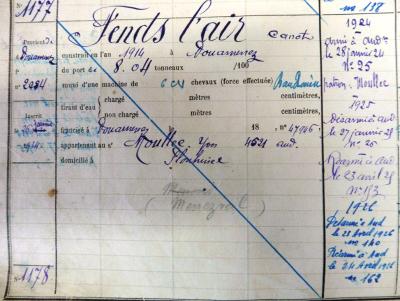 1177
Fends l'air canot
construit en l'an 1914 à Douarnenez
du port de 8.04 tonneaux /100
muni d'une machine de 6 CV chevaux (force effectuée)
tirant d'eau chargé mètres centimètres,
non chargé mètres centimètres,
francisé à Douarnenez 18 , n° 47046
appartenant au sr Moullec, Yves 4521 aud.
domicilié à Plonhinec
n° 2084
Inscrit
1178
n° 118
1924
Armé à aud.
le 28 janv. 24
N° 25
patron : Moullec
1925
Désarmé à aud
le 27 janvier 25
n° 25
Réarmé à aud
le 23 avril 25
1926
Désarmé à Aud
le 23 Avril 1926
n° 140
Réarmé à Aud
le 24 Avril 1926
n° 162